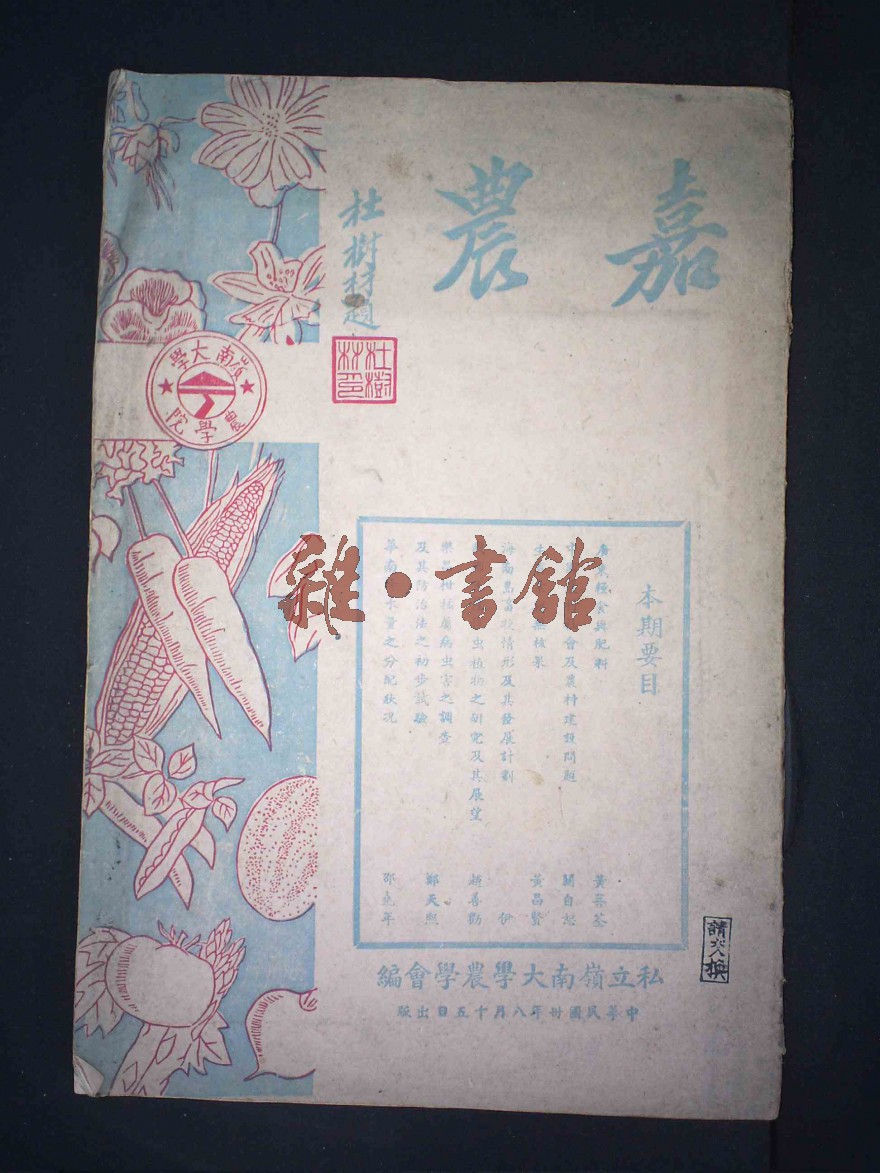 嘉農
杜樹材題
杜樹材印
嶺南大學
農學院
本期要目
廣東糧食與肥料 黃菩荃
會及農村建設問題 關自恕
無核果 黃昌賢
海南島畜牧情形及其發展計劃 伊
虫植物之研究及其展望 趙善勸
樂昌柑桔廣病虫害之調查
及其防治法之初步試驗 鄭天熙
華南 水量之分配狀况 邵堯年
私立嶺南大學農學會編
中華民國卅年八月十五日出版
請交換
雜·書館